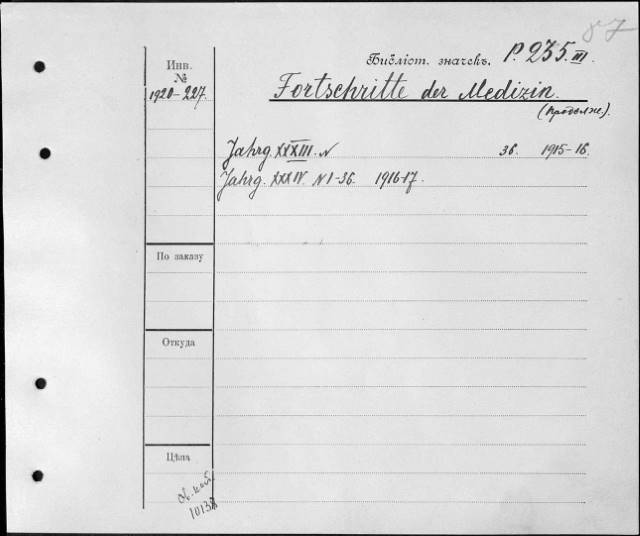 87
Библіот. значекъ. P. 235.III.
Инв.
№
1920-227.
Fortschritte der Medizin.
(Продолж.).
Jahrg. XXXIII. N 36. 1915-16.
Jahrg. XXXIV. N 1-36. 1916-17.
По заказу
Откуда
Цѣна